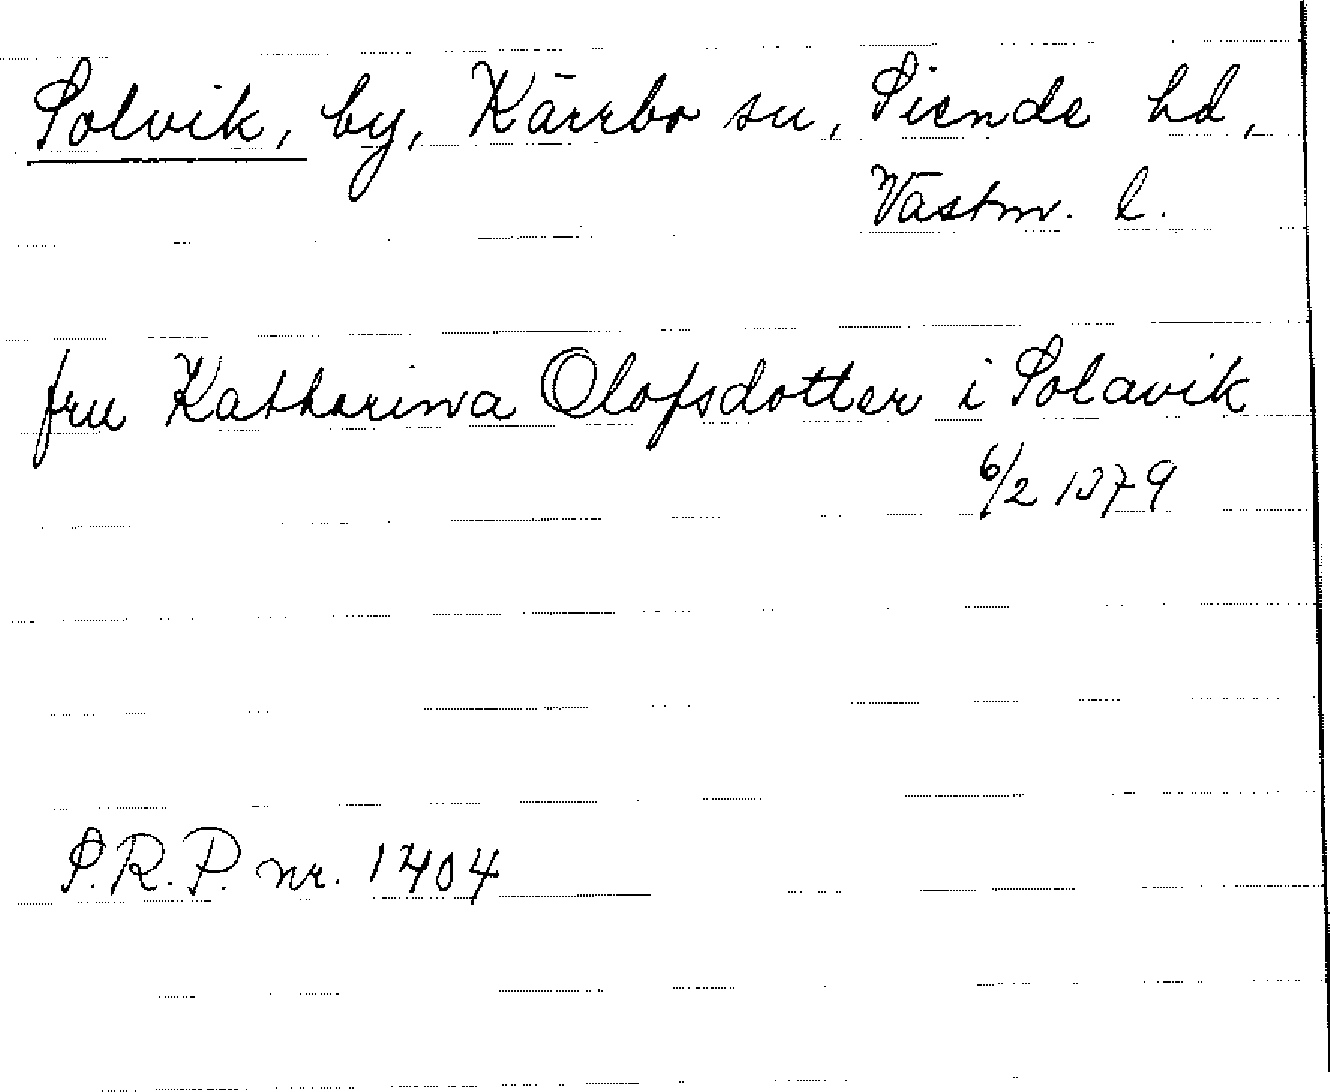 Solvik, by, Kärrbo sn, Siende hd,
Västm. l.
fru Katharina Olofsdotter i Solavik
6/2 1379
S.R.P. nr. 1404